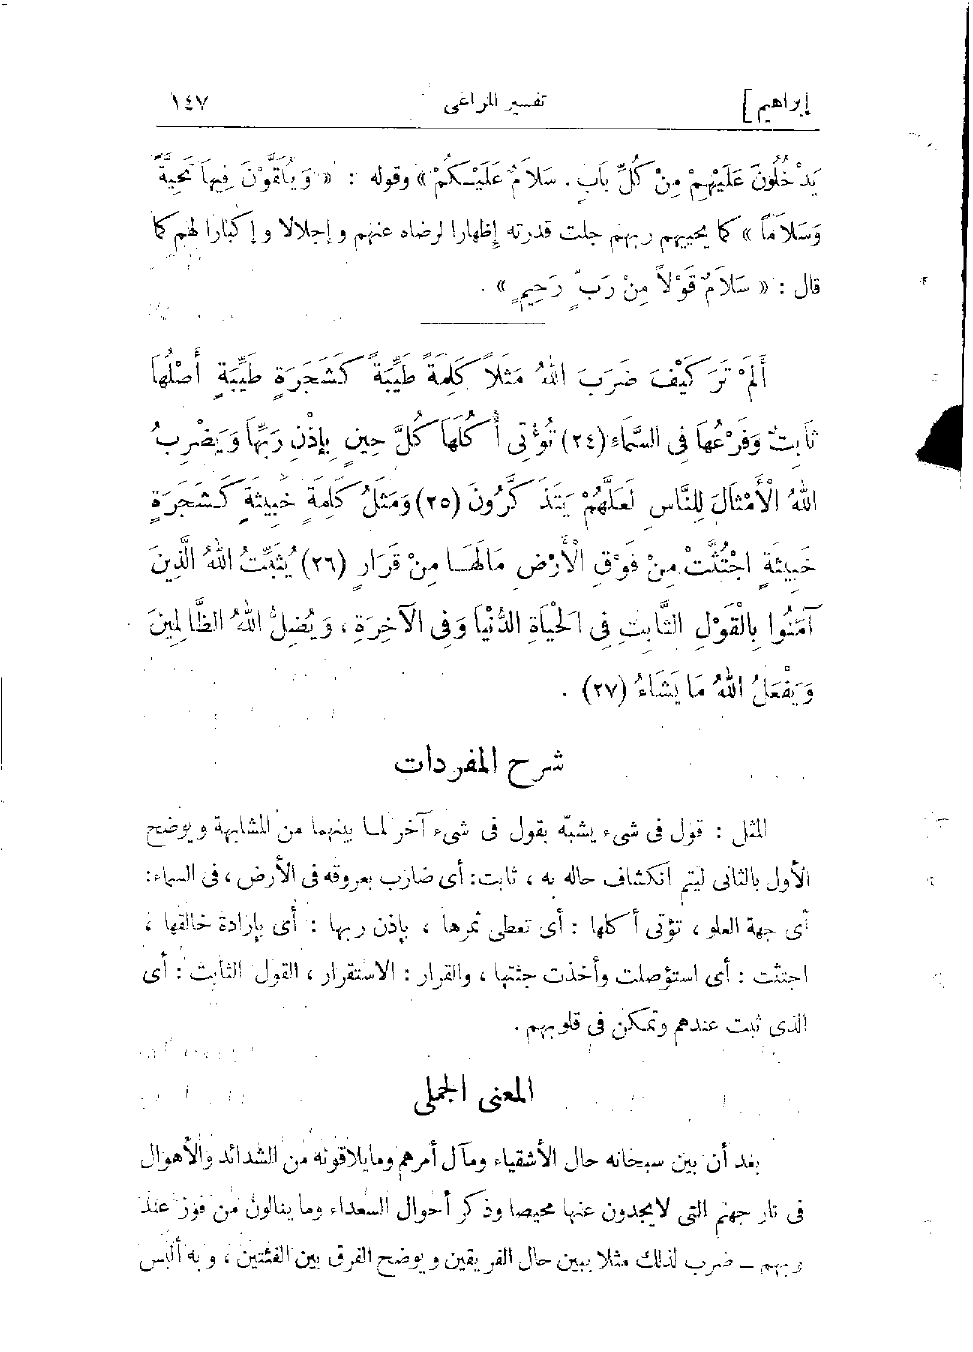 إبراهيم] تفسير المراغى ١٤٧
يَدْخُلُونَ عَلَيْهِمْ مِنْ كُلِّ بَابٍ. سَلَامٌ عَلَيْكُمْ » وقوله : « وَيُلَقَّوْنَ فِيهَا تَحِيَّةً
وَسَلَامًا » كما يحييهم ربهم جلت قدرته إظهارا لرضاه عنهم وإجلالا وإكبارا لهم كما
قال : « سَلَامٌ قَوْلًا مِنْ رَبٍّ رَحِيمٍ » .
أَلَمْ تَرَ كَيْفَ ضَرَبَ اللهُ مَثَلًا كَلِمَةً طَيِّبَةً كَشَجَرَةٍ طَيِّبَةٍ أَصْلُهَا
ثَابِتٌ وَفَرْعُهَا فِى السَّمَاءِ (٢٤) تُؤْتِى أُكُلَهَا كُلَّ حِينٍ بِإِذْنِ رَبِّهَا وَيَضْرِبُ
اللهُ الْأَمْثَالَ لِلنَّاسِ لَعَلَّهُمْ يَتَذَكَّرُونَ (٢٥) وَمَثَلُ كَلِمَةٍ خَبِيثَةٍ كَشَجَرَةٍ
خَبِيثَةٍ اجْتُثَّتْ مِنْ فَوْقِ الْأَرْضِ مَالَهَا مِنْ قَرَارٍ (٢٦) يُثَبِّتُ اللهُ الَّذِينَ
آمَنُوا بِالْقَوْلِ الثَّابِتِ فِى الْحَيَاةِ الدُّنْيَا وَفِى الْآخِرَةِ ، وَيُضِلُّ اللهُ الظَّالِمِينَ
وَيَفْعَلُ اللهُ مَا يَشَاءُ (٢٧) .
شرح المفردات
المثل : قول فى شىء يشبّه بقول فى شىء آخر لما بينهما من المشابهة ويوضح
الأول بالثانى ليتم انكشاف حاله به ، ثابت: أى ضارب بعروقه فى الأرض ، فى السماء:
أى جهة العلو ، تؤتى أكلها : أى تعطى ثمرها ، بإذن ربها : أى بإرادة خالقها ،
اجتثت : أى استؤصلت وأخذت جثتها ، والقرار : الاستقرار ، القول الثابت : أى
الذى ثبت عندهم وتمكن فى قلوبهم .
المعنى الجملى
بعد أن بين سبحانه حال الأشقياء ومآل أمرهم وما يلاقونه من الشدائد والأهوال
فى نار جهنم التى لا يجدون عنها محيصا وذكر أحوال السعداء وما ينالون من فوز عند
ربهم – ضرب لذلك مثلا يبين حال الفريقين ويوضح الفرق بين الفئتين ، وبه ألبس